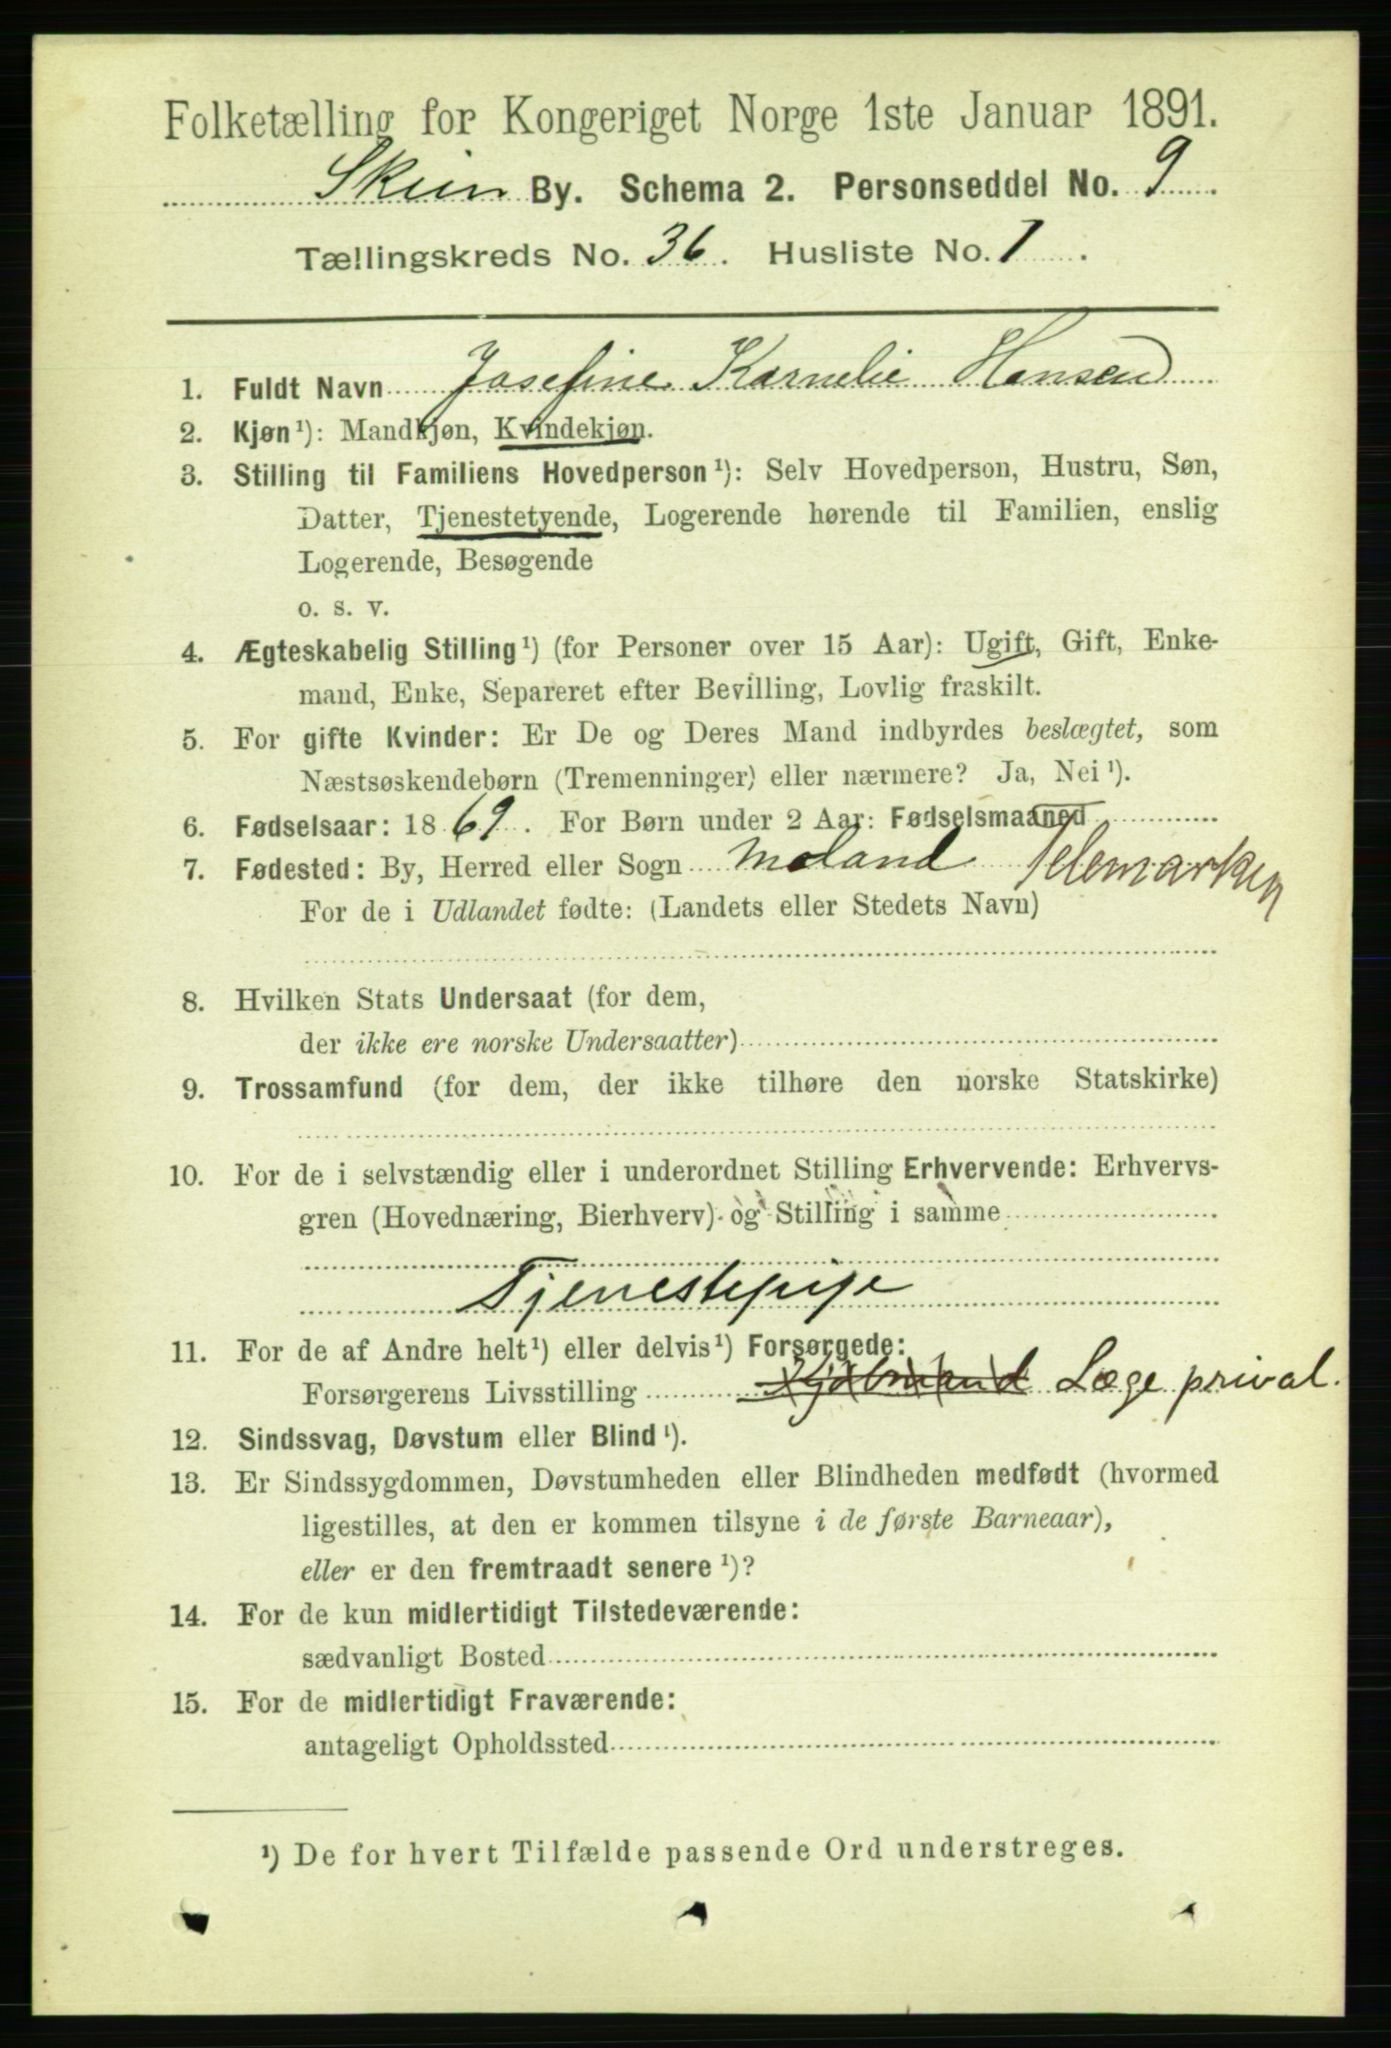 Folketælling for Kongeriget Norge 1ste Januar 1891.
Skien By. Schema 2. Personseddel No. 9.
Tællingskreds No. 36. Husliste No. 1.
1. Fuldt Navn Josefine Karnelie Hansen
2. Kjøn¹): Mandkjøn, Kvindekjøn.
3. Stilling til Familiens Hovedperson¹): Selv Hovedperson, Hustru, Søn,
Datter, Tjenestetyende, Logerende hørende til Familien, enslig
Logerende, Besøgende
o. s. v.
4. Ægteskabelig Stilling¹) (for Personer over 15 Aar): Ugift, Gift, Enke-
mand, Enke, Separeret efter Bevilling, Lovlig fraskilt.
5. For gifte Kvinder: Er De og Deres Mand indbyrdes beslægtet, som
Næstsøskendebørn (Tremenninger) eller nærmere? Ja, Nei¹).
6. Fødselsaar: 1869. For Børn under 2 Aar: Fødselsmaaned
7. Fødested: By, Herred eller Sogn Moland Telemarken
For de i Udlandet fødte: (Landets eller Stedets Navn)
8. Hvilken Stats Undersaat (for dem,
der ikke ere norske Undersaatter)
9. Trossamfund (for dem, der ikke tilhøre den norske Statskirke)
10. For de i selvstændig eller i underordnet Stilling Erhvervende: Erhvervs-
gren (Hovednæring, Bierhverv) og Stilling i samme
Tjenestepige
11. For de af Andre helt¹) eller delvis¹) Forsørgede:
Forsørgerens Livsstilling Kjøbmand Læge prival.
12. Sindssvag, Døvstum eller Blind¹).
13. Er Sindssygdommen, Døvstumheden eller Blindheden medfødt (hvormed
ligestilles, at den er kommen tilsyne i de første Barneaar),
eller er den fremtraadt senere¹)?
14. For de kun midlertidigt Tilstedeværende:
sædvanligt Bosted
15. For de midlertidigt Fraværende:
antageligt Opholdssted
¹) De for hvert Tilfælde passende Ord understreges.